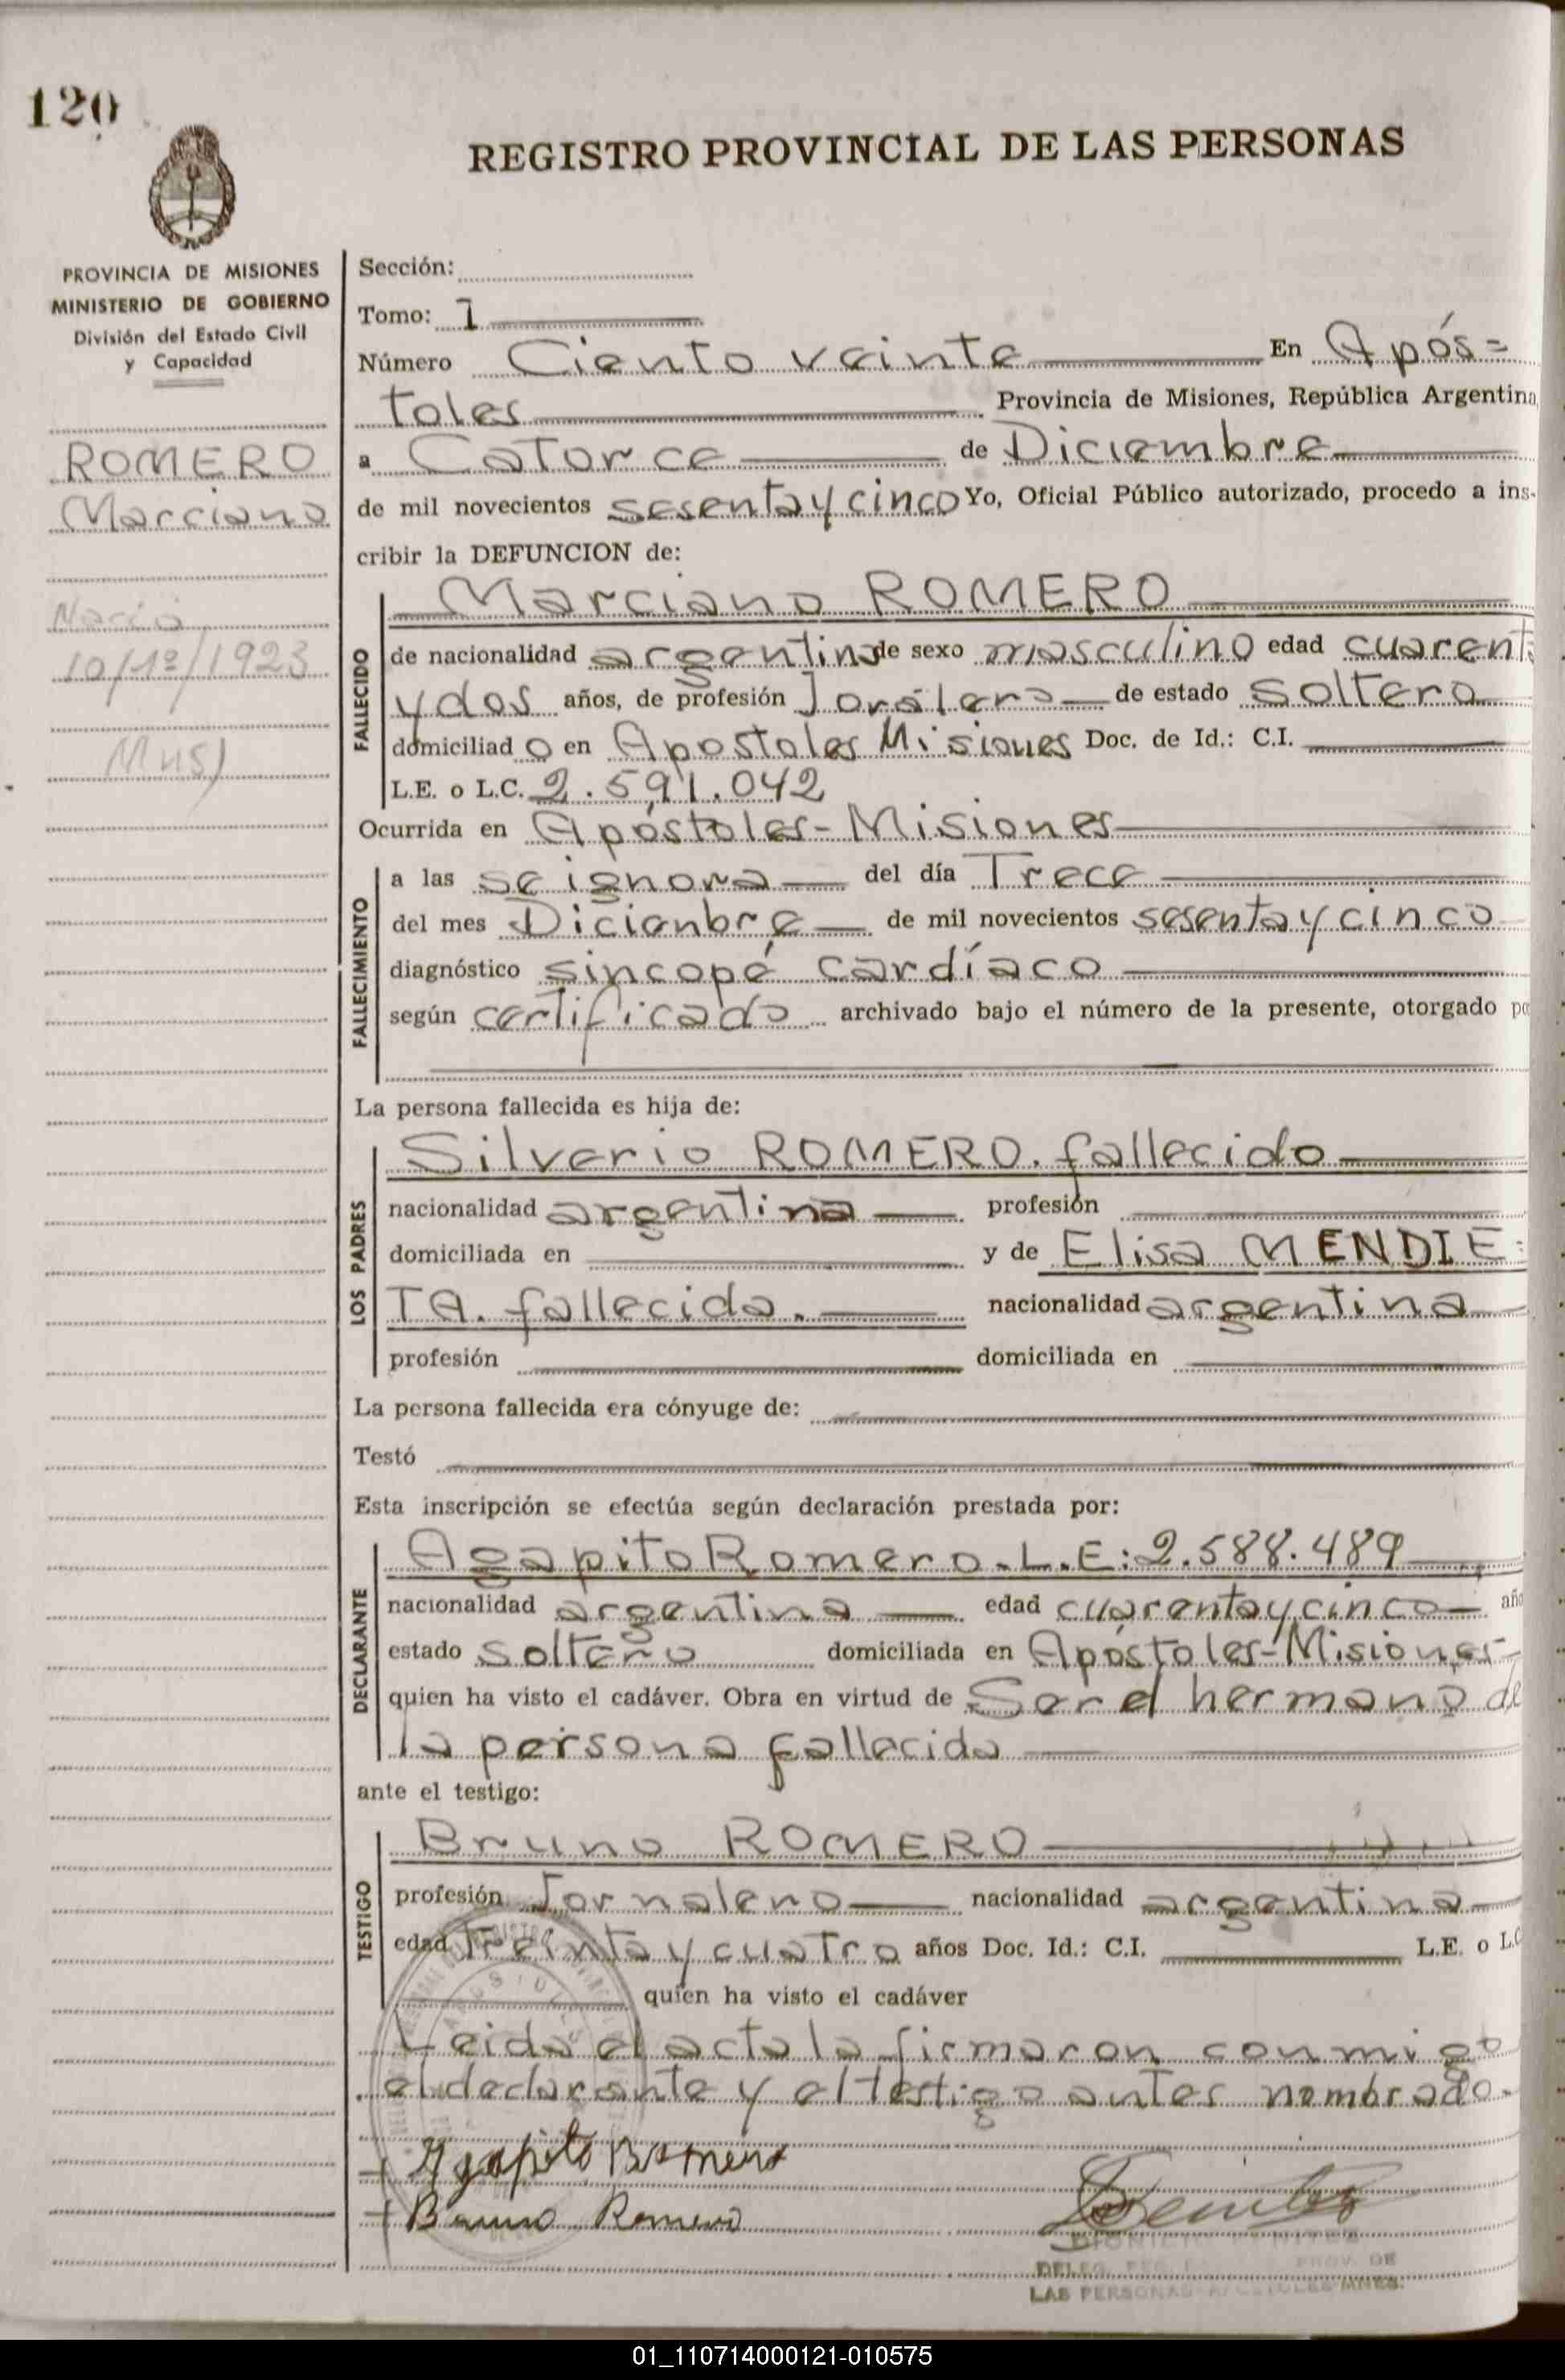 120
REGISTRO PROVINCIAL DE LAS PERSONAS
PROVINCIA DE MISIONES
MINISTERIO DE GOBIERNO
División del Estado Civil
y Capacidad
ROMERO
Marciano
Nació
10/1º/1923
Sección:
Tomo: 1
Número Ciento veinte En Após=
toles Provincia de Misiones, República Argentina,
a Catorce de Diciembre
de mil novecientos sesenta y cinco Yo, Oficial Público autorizado, procedo a ins-
cribir la DEFUNCION de:
FALLECIDO
Marciano ROMERO
de nacionalidad argentina de sexo masculino edad cuarenta
y dos años, de profesión Jornalero de estado soltero
domiciliado en Apostoles Misiones Doc. de Id.: C.I.
L.E. o L.C. 2.591.042
Ocurrida en Apóstoles-Misiones
FALLECIMIENTO
a las se ignora del día Trece
del mes Dicienbre de mil novecientos sesenta y cinco
diagnóstico sincopé cardíaco
según certificado archivado bajo el número de la presente, otorgado po
La persona fallecida es hija de:
LOS PADRES
Silverio ROMERO. fallecido
nacionalidad argentina profesión
domiciliada en y de Elisa MENDIE=
TA. fallecida. nacionalidad argentina
profesión domiciliada en
La persona fallecida era cónyuge de:
Testó
Esta inscripción se efectúa según declaración prestada por:
DECLARANTE
Agapito Romero.L.E:2.588.489
nacionalidad argentina edad cuarenta y cinco año
estado soltero domiciliada en Apóstoles-Misiones-
quien ha visto el cadáver. Obra en virtud de Ser el hermano de
la persona fallecida
ante el testigo:
TESTIGO
Bruno ROMERO
profesión Jornalero nacionalidad argentina
edad Treinta y cuatro años Doc. Id.: C.I. L.E. o L.C
quien ha visto el cadáver
Leida el acta la firmaron conmigo
el declarante y el testigo antes nombrado.
+ Agapito Romero
+ Bruno Romero
Benitez
DIONICIO BENITEZ
DELEG. PROV. DE
LAS PERSONAS APOSTOLES MNES.
01_110714000121-010575